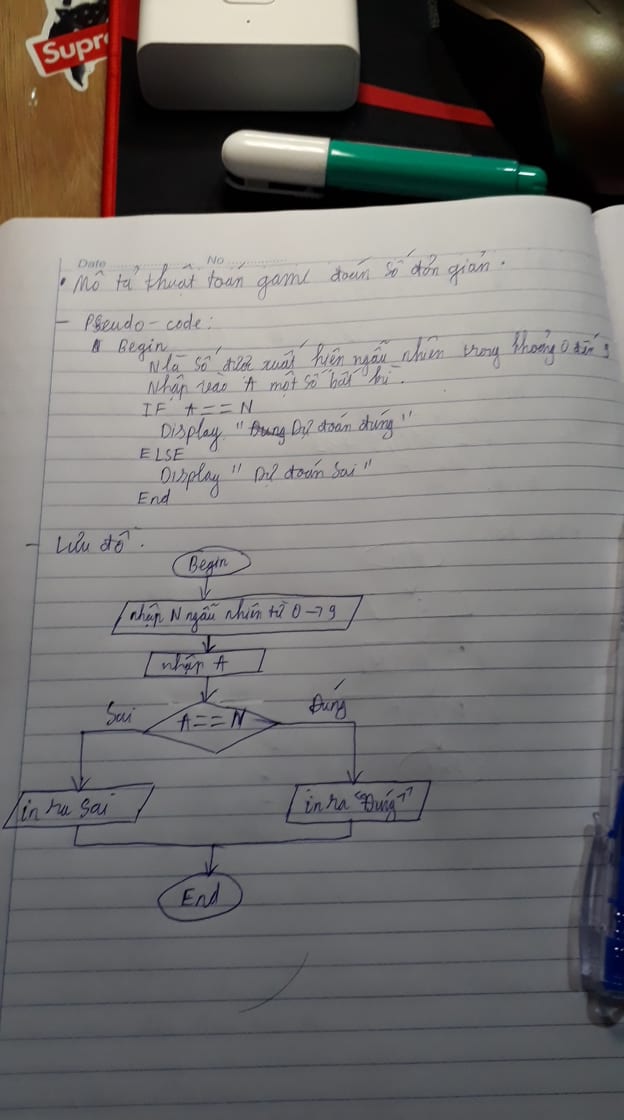 Supre
Date No
• Mô tả thuật toán game đoán số đơn giản.
- Pseudo-code:
Begin
N là số được xuất hiện ngẫu nhiên trong khoảng 0 đến 9
Nhập vào A một số bất kì.
IF A == N
Display "Đung Dự đoán đúng"
ELSE
Display "Dự đoán Sai"
End
- Lưu đồ.
Begin
nhập N ngẫu nhiên từ 0 → 9
nhập A
Sai A == N Đúng
in ra Sai in ra "Đúng"
End